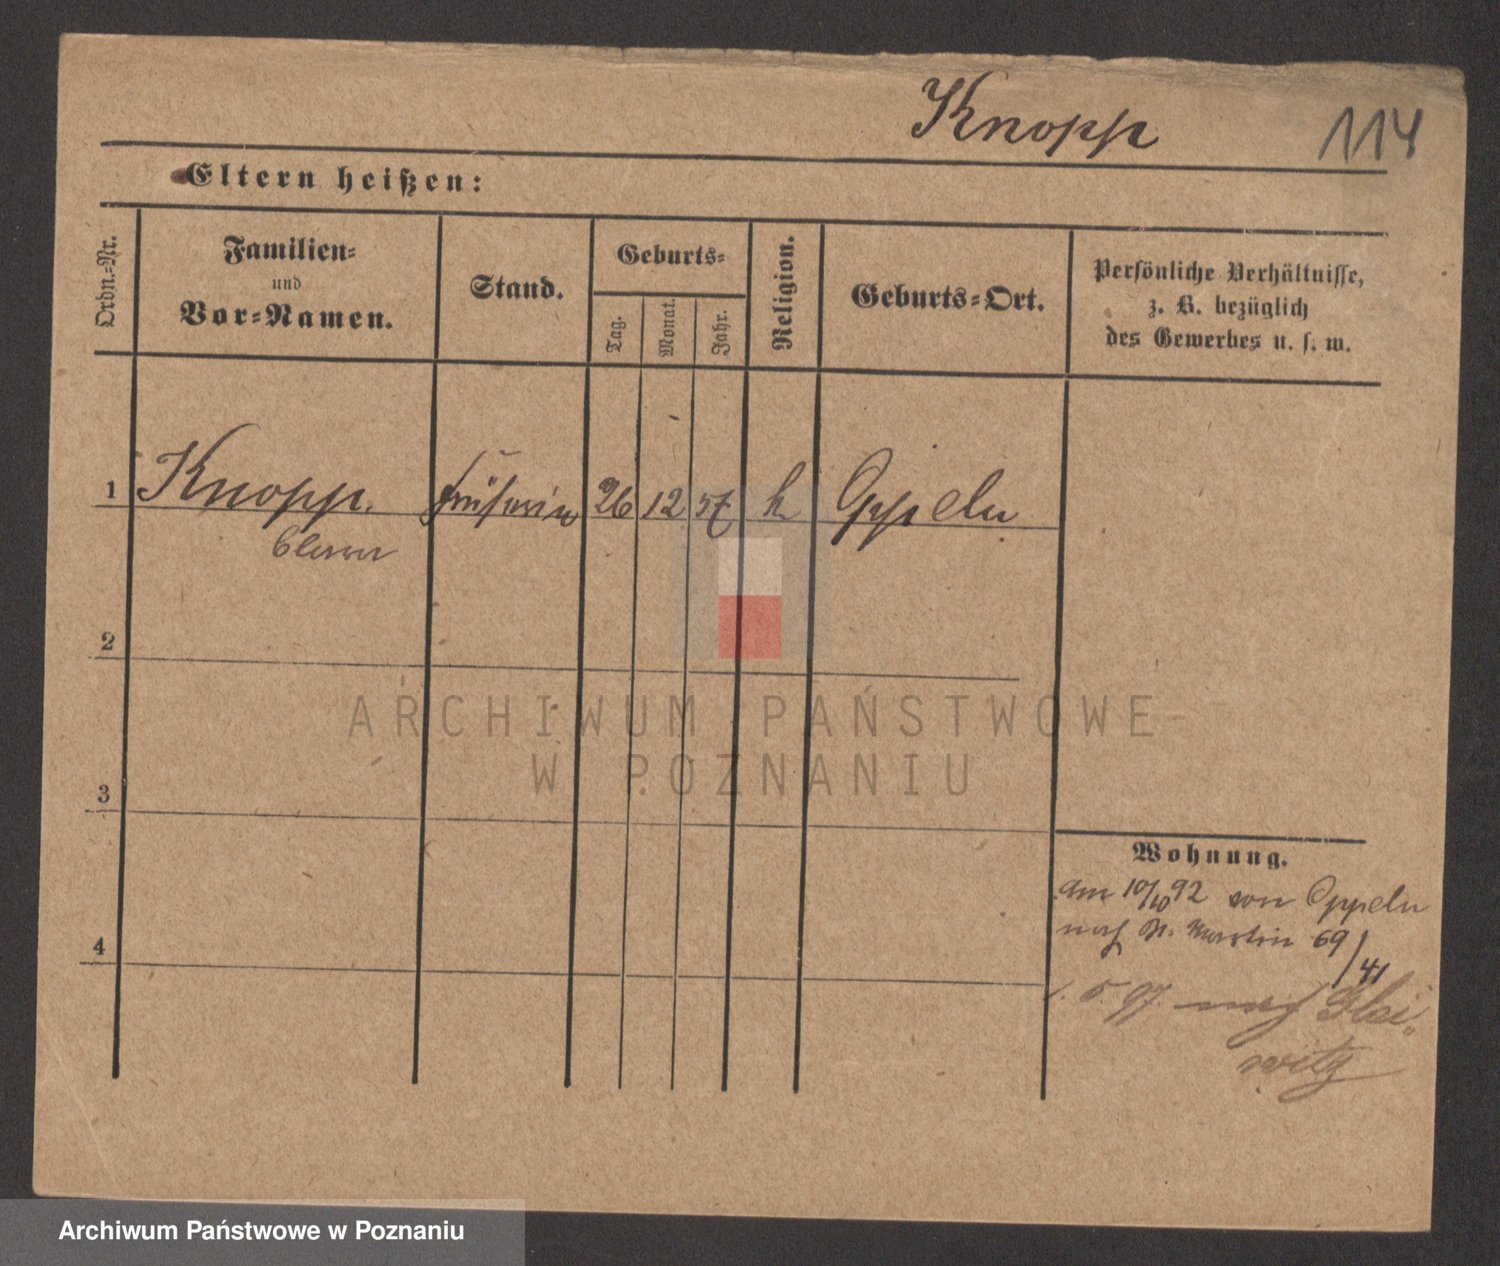 Knopp
114
Eltern heißen:
Ordn.-Nr.
Familien-
und
Vor-Namen.
Stand.
Geburts-
Tag.
Monat.
Jahr.
Religion.
Geburts-Ort.
Persönliche Verhältnisse,
z. B. bezüglich
des Gewerbes u. s. w.
1 Knopp. 26 12 57 k Oppeln
Clara
2
3
4
Wohnung.
am 10/10 92 von Oppeln
nach St. Martin 69/
41
1. 5 97. nach Glei„
witz
ARCHIWUM PAŃSTWOWE
W POZNANIU
Archiwum Państwowe w Poznaniu